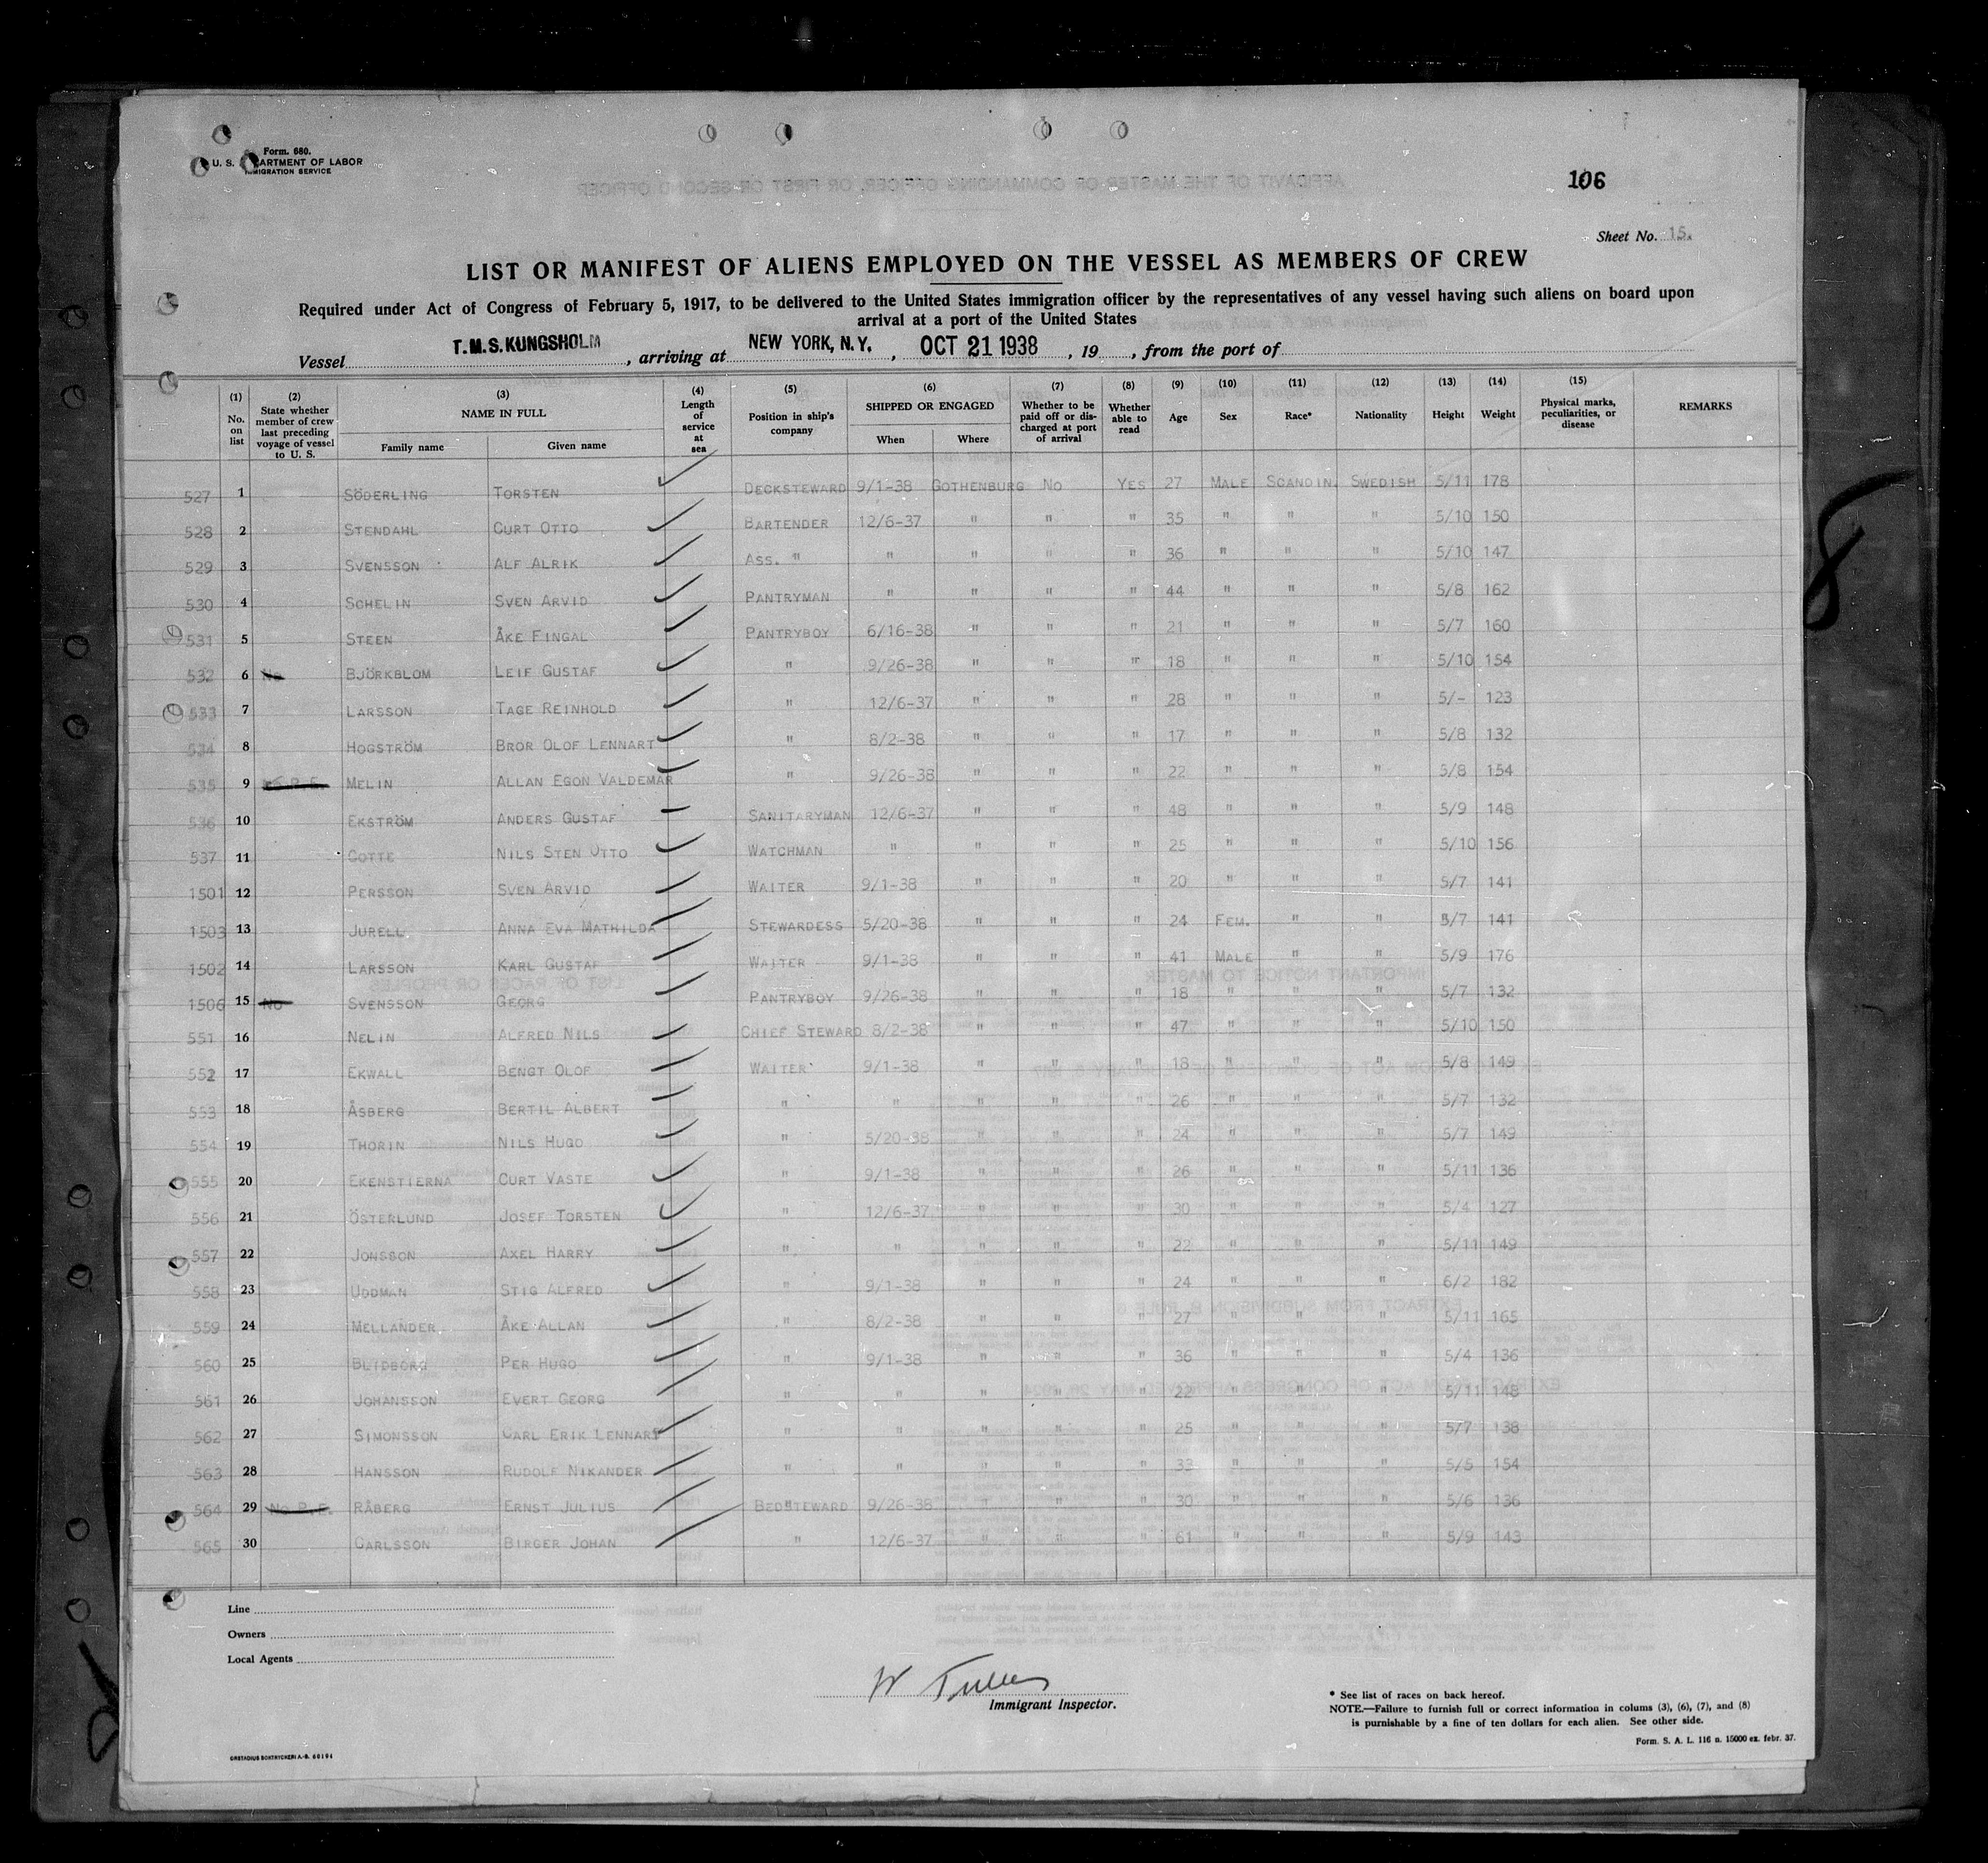 Form. 680.
U. S. DEPARTMENT OF LABOR
IMMIGRATION SERVICE
106
Sheet No. 15.
LIST OR MANIFEST OF ALIENS EMPLOYED ON THE VESSEL AS MEMBERS OF CREW
Required under Act of Congress of February 5, 1917, to be delivered to the United States immigration officer by the representatives of any vessel having such aliens on board upon
arrival at a port of the United States
Vessel T.M.S. KUNGSHOLM, arriving at NEW YORK, N.Y., OCT 21 1938, 19 , from the port of
(1) No. on list (2) State whether member of crew last preceding voyage of vessel to U. S. (3) NAME IN FULL Family name Given name (4) Length of service at sea (5) Position in ship's company (6) SHIPPED OR ENGAGED When Where (7) Whether to be paid off or discharged at port of arrival (8) Whether able to read (9) Age (10) Sex (11) Race* (12) Nationality (13) Height (14) Weight (15) Physical marks, peculiarities, or disease REMARKS
527 1 SÖDERLING TORSTEN DECKSTEWARD 9/1-38 GOTHENBURG NO YES 27 MALE SCANDIN. SWEDISH 5/11 178
528 2 STENDAHL CURT OTTO BARTENDER 12/6-37 " " " 35 " " " 5/10 150
529 3 SVENSSON ALF ALRIK ASS. " " " " " 36 " " " 5/10 147
530 4 SCHELIN SVEN ARVID PANTRYMAN " " " " 44 " " " 5/8 162
531 5 STEEN ÅKE FINGAL PANTRYBOY 6/16-38 " " " 21 " " " 5/7 160
532 6 No BJÖRKBLOM LEIF GUSTAF " 9/26-38 " " " 18 " " " 5/10 154
533 7 LARSSON TAGE REINHOLD " 12/6-37 " " " 28 " " " 5/- 123
534 8 HOGSTRÖM BROR OLOF LENNART " 8/2-38 " " " 17 " " " 5/8 132
535 9 MELIN ALLAN EGON VALDEMAR " 9/26-38 " " " 22 " " " 5/8 154
536 10 EKSTRÖM ANDERS GUSTAF SANITARYMAN 12/6-37 " " " 48 " " " 5/9 148
537 11 COTTE NILS STEN OTTO WATCHMAN " " " " 25 " " " 5/10 156
1501 12 PERSSON SVEN ARVID WAITER 9/1-38 " " " 20 " " " 5/7 141
1503 13 JURELL ANNA EVA MATHILDA STEWARDESS 5/20-38 " " " 24 FEM. " " 5/7 141
1502 14 LARSSON KARL GUSTAF WAITER 9/1-38 " " " 41 MALE " " 5/9 176
1506 15 No SVENSSON GEORG PANTRYBOY 9/26-38 " " " 18 " " " 5/7 132
551 16 NELIN ALFRED NILS CHIEF STEWARD 8/2-38 " " " 47 " " " 5/10 150
552 17 EKWALL BENGT OLOF WAITER 9/1-38 " " " 18 " " " 5/8 149
553 18 ÅSBERG BERTIL ALBERT " " " " " 26 " " " 5/7 132
554 19 THORIN NILS HUGO " 5/20-38 " " " 24 " " " 5/7 149
555 20 EKENSTIERNA CURT VASTE " 9/1-38 " " " 26 " " " 5/11 136
556 21 ÖSTERLUND JOSEF TORSTEN " 12/6-37 " " " 30 " " " 5/4 127
557 22 JONSSON AXEL HARRY " " " " " 22 " " " 5/11 149
558 23 UDDMAN STIG ALFRED " 9/1-38 " " " 24 " " " 6/2 182
559 24 MELLANDER ÅKE ALLAN " 8/2-38 " " " 27 " " " 5/11 165
560 25 BLIDBORG PER HUGO " 9/1-38 " " " 36 " " " 5/4 136
561 26 JOHANSSON EVERT GEORG " " " " " 22 " " " 5/11 148
562 27 SIMONSSON CARL ERIK LENNART " " " " " 25 " " " 5/7 138
563 28 HANSSON RUDOLF NIKANDER " " " " " 33 " " " 5/5 154
564 29 No P.E. RÅBERG ERNST JULIUS BEDSTEWARD 9/26-38 " " " 30 " " " 5/6 136
565 30 CARLSSON BIRGER JOHAN " 12/6-37 " " " 61 " " " 5/9 143
Line
Owners
Local Agents
Immigrant Inspector.
* See list of races on back hereof.
NOTE.—Failure to furnish full or correct information in colums (3), (6), (7), and (8)
is punishable by a fine of ten dollars for each alien. See other side.
Form. S. A. L. 116 n. 15000 ex. febr. 37.
8